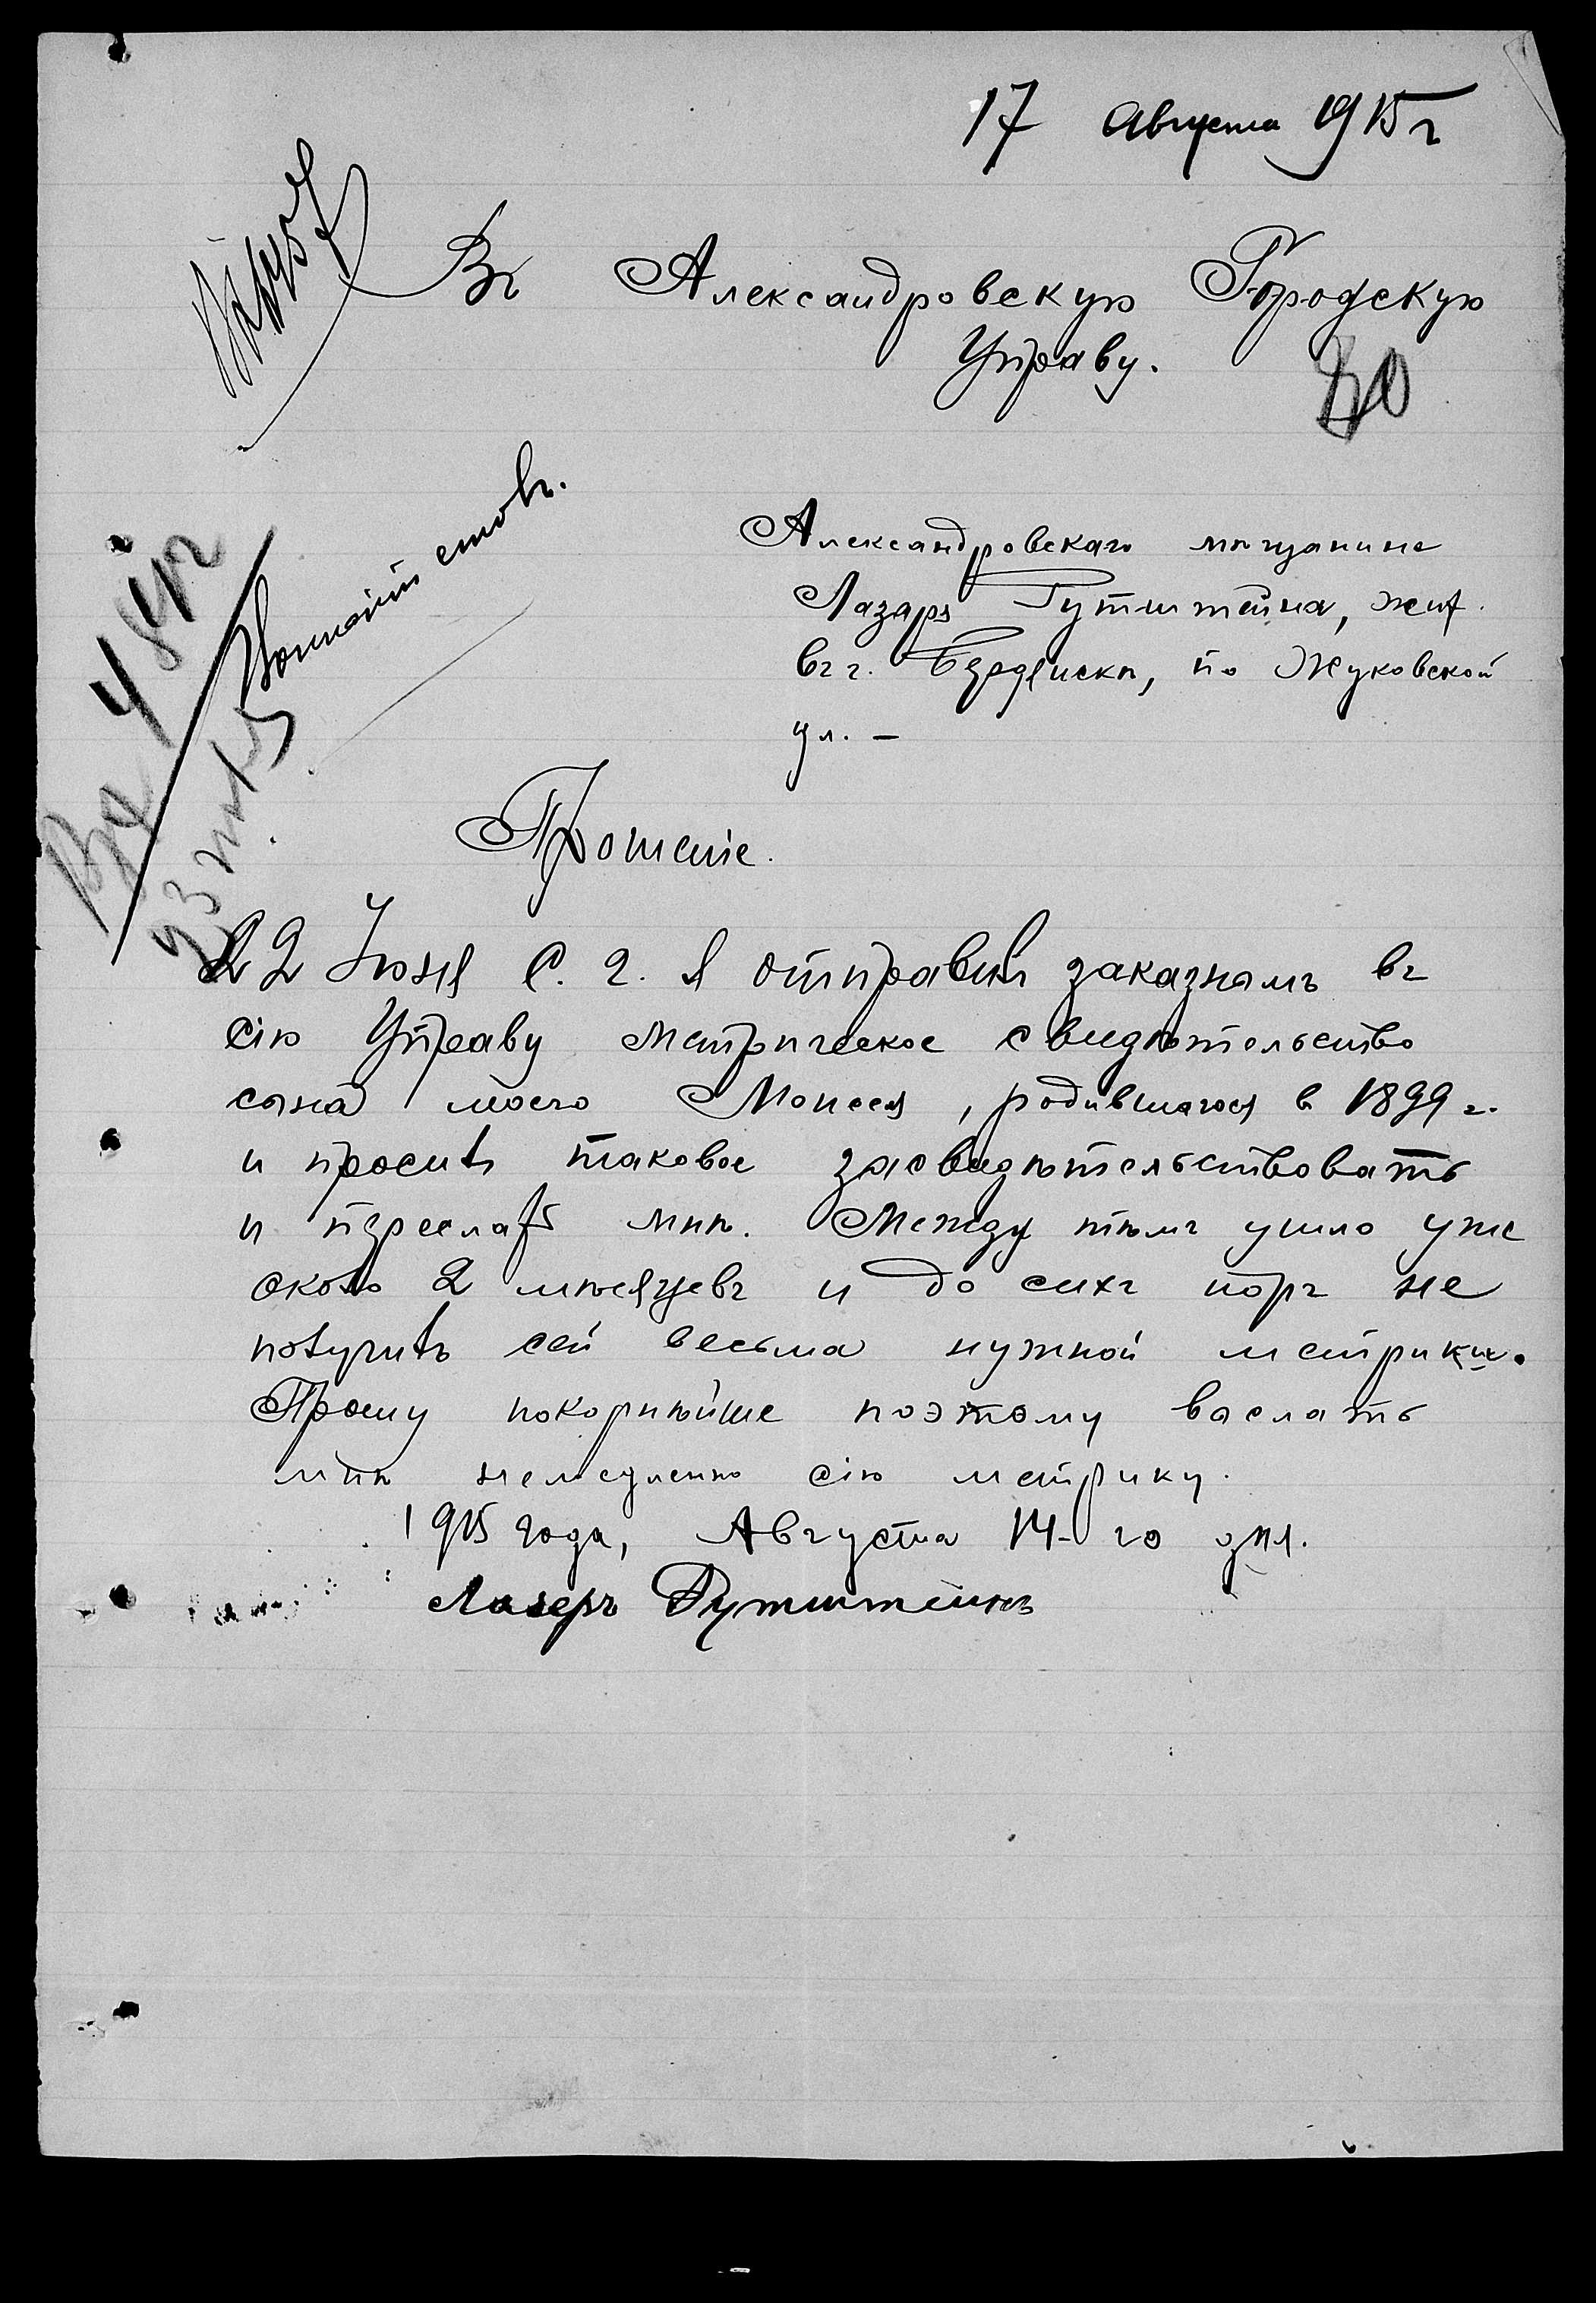 17 Августа 1915 г
Въ Александровскую Городскую
Управу.
80
Александровскаго мѣщанина
Лазаря Гутштейна, жит.
въ г. Бердянскѣ, по Жуковской
ул. —
Прошеніе.
22 Іюня с. г. я отправилъ заказнымъ въ
сію Управу метрическое свидѣтельство
сына моего Моисея, родившагося в 1899 г.
и просилъ таковое засвидѣтельствовать
и переслать мнѣ. Между тѣмъ ушло уже
около 2 мѣсяцевъ и до сихъ поръ не
получилъ сей весьма нужной метрики.
Прошу покорнѣйше поэтому выслать
мнѣ немедленно сію метрику.
1915 года, Августа 14-го дня.
Лазеръ Гутштейнъ